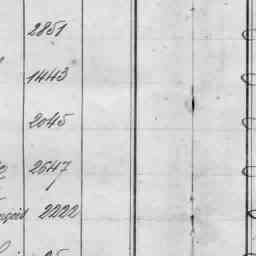 2851
1443
2045
2647
2222